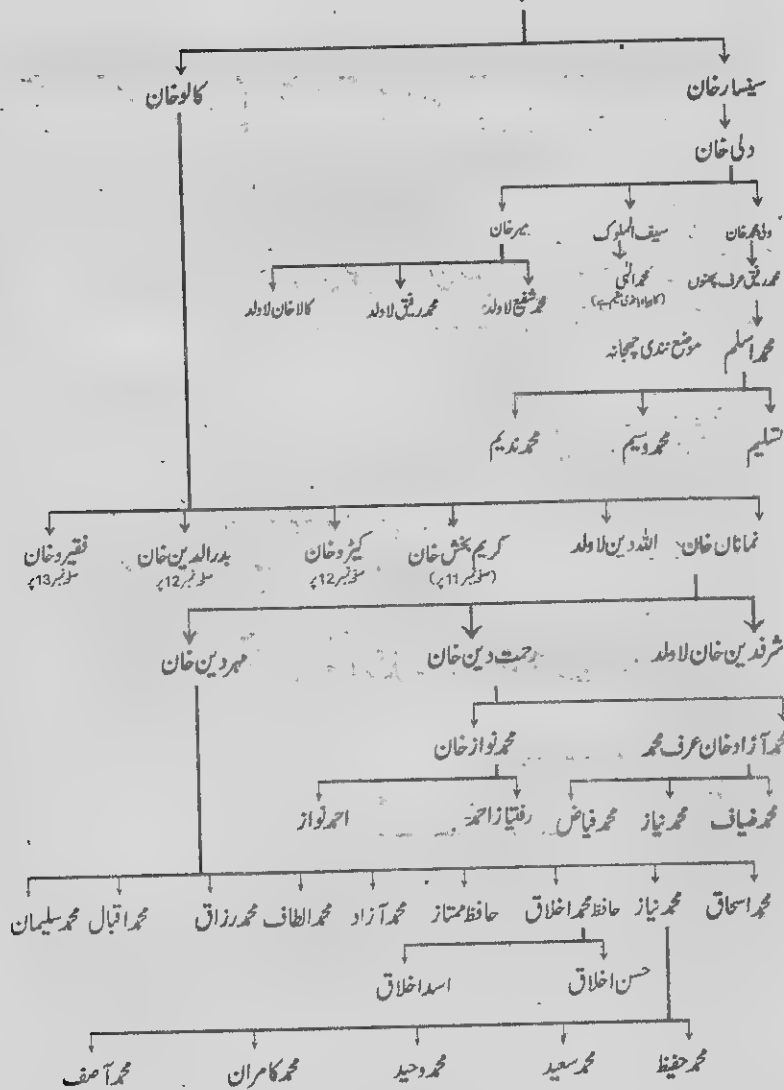 سینسار خان کالو خان
ولی خان
ولی محمد خان سیف الملوک میر خان
محمد رفیق عرف پھنوں محمد الٰہی محمد شفیع لاولد محمد رفیق لاولد کالا خان لاولد
محمد اسلم موضع نندی چیچانہ
تسلیم محمد وسیم محمد ندیم
نمانان خان اللہ دین لاولد کریم بخش خان کیڑو خان بدرالدین خان فقیرو خان
(صفحہ نمبر 11 پر) صفحہ نمبر 12 پر صفحہ نمبر 12 پر صفحہ نمبر 13 پر
شرفدین خان لاولد رحمت دین خان مہر دین خان
محمد آزاد خان عرف محمد محمد نواز خان
محمد ضیاف محمد نیاز محمد فیاض رفتیاز احمد احمد نواز
محمد اسحاق محمد نیاز حافظ محمد اخلاق حافظ ممتاز محمد آزاد محمد الطاف محمد رزاق محمد اقبال محمد سلیمان
حسن اخلاق اسد اخلاق
محمد حفیظ محمد سعید محمد وحید محمد کامران محمد آصف